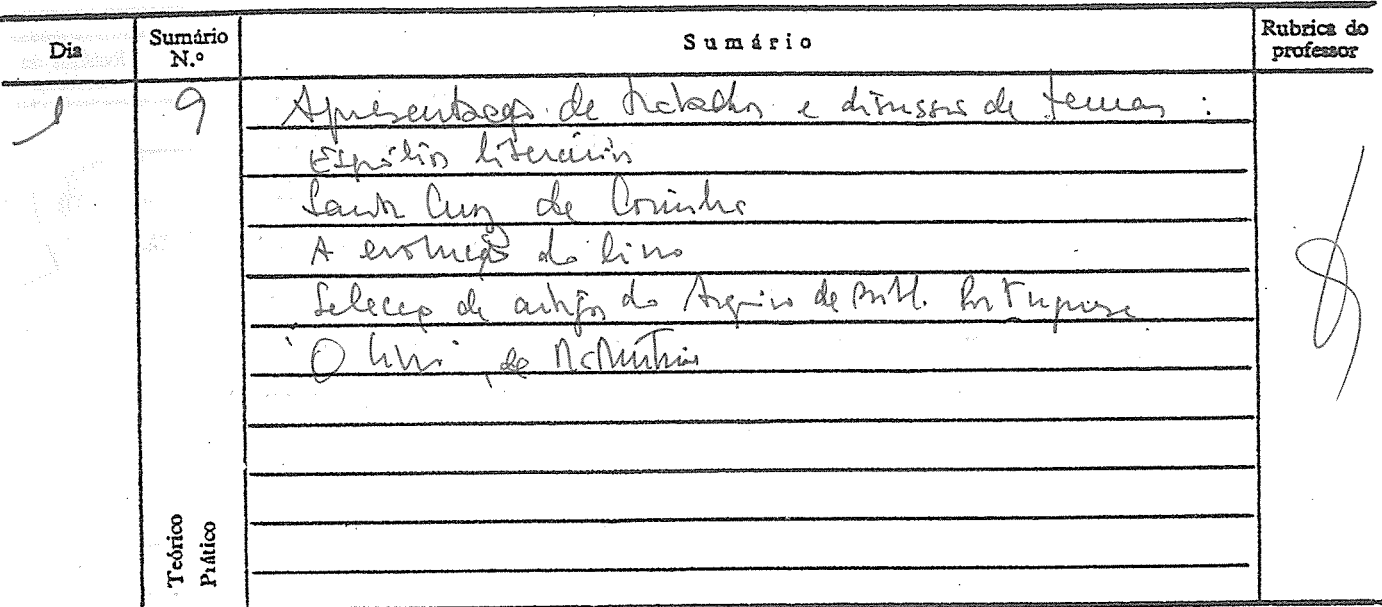 Dia
Sumário N.º
Sumário
Rubrica do professor
9
Apresentação de trabalhos e discussão de temas :
Espólios literários
Santa Cruz de Coimbra
A evolução do livro
Selecção de artigos do Arquivo de Bibl. Portuguesa
"O livro", de McMurtrie
Teórico
Prático